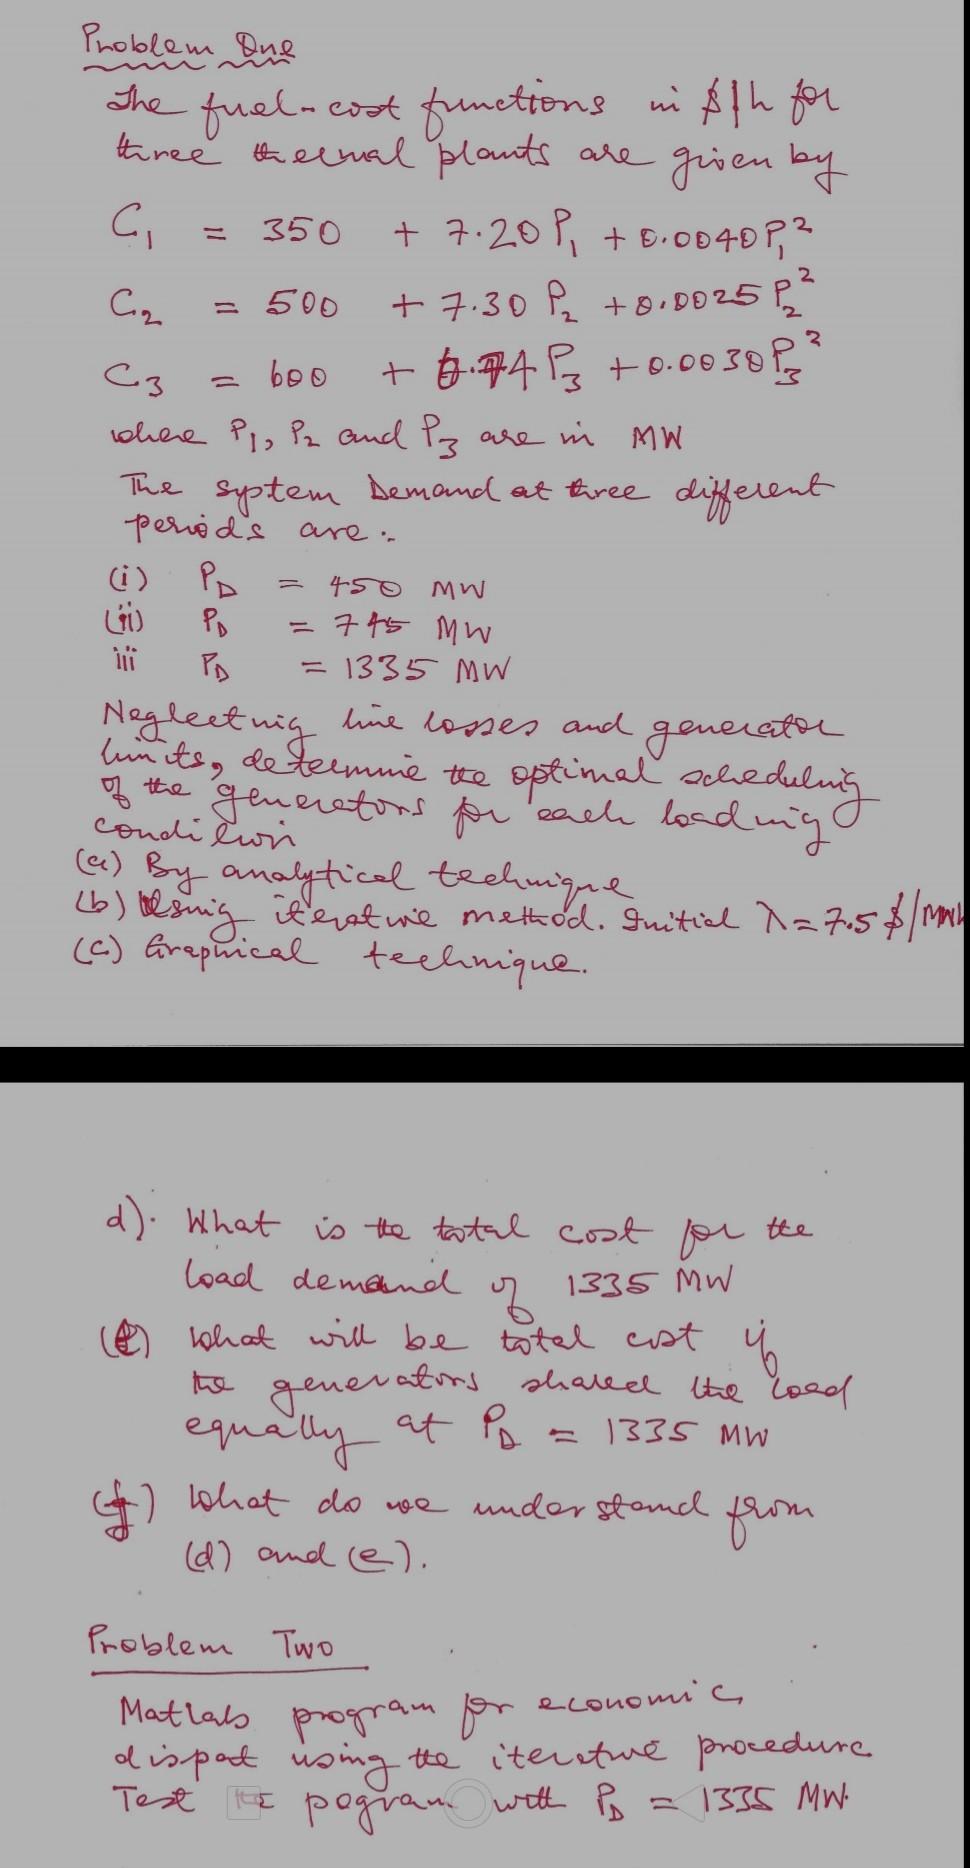 Problem One
The fuel-cost functions in $/h for
three thermal plants are given by
C₁ = 350 + 7.20 P₁ + 0.0040 P₁²
C₂ = 500 + 7.30 P₂ + 0.0025 P₂²
C₃ = 600 + 6.74 P₃ + 0.0030 P₃²
where P₁, P₂ and P₃ are in MW
The system Demand at three different
periods are :-
(i) P_D = 450 MW
(ii) P_D = 745 MW
iii P_D = 1335 MW
Neglecting line losses and generator
limits, determine the optimal scheduling
of the generators for each loading
condition
(a) By analytical technique
(b) Using iterative method. Initial λ = 7.5 $/MWh
(c) Graphical technique.
d). What is the total cost for the
load demand of 1335 MW
(e) What will be total cost if
the generators shared the load
equally at P_D = 1335 MW
(f) What do we understand from
(d) and (e).
Problem Two
Matlab program for economic
dispat using the iterative procedure
Test the pogram with P_D = 1335 MW.